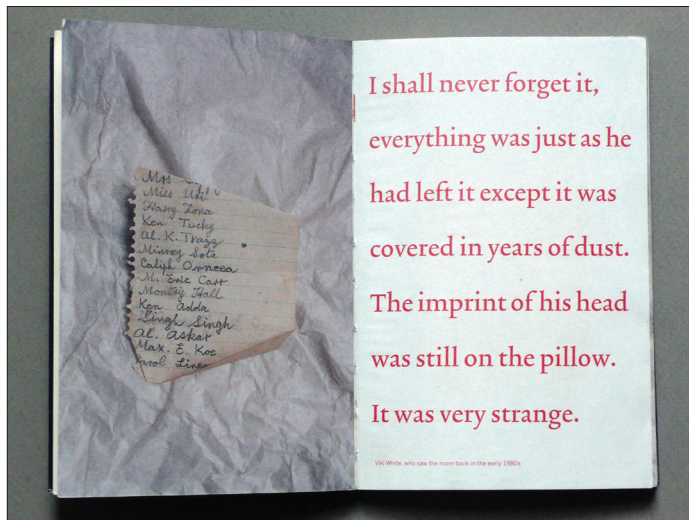 Mrs
Miss Uri
Harry Zona
Ken Tucky
Al. K. Trazz
Minney Sota
Caliph Orneea
M. Eric Carr
Monty Hall
Ken Adda
Singh Singh
Al. Askar
Max. E. Koe
Carol Line
I shall never forget it,
everything was just as he
had left it except it was
covered in years of dust.
The imprint of his head
was still on the pillow.
It was very strange.
Viki White, who saw the room back in the early 1980s